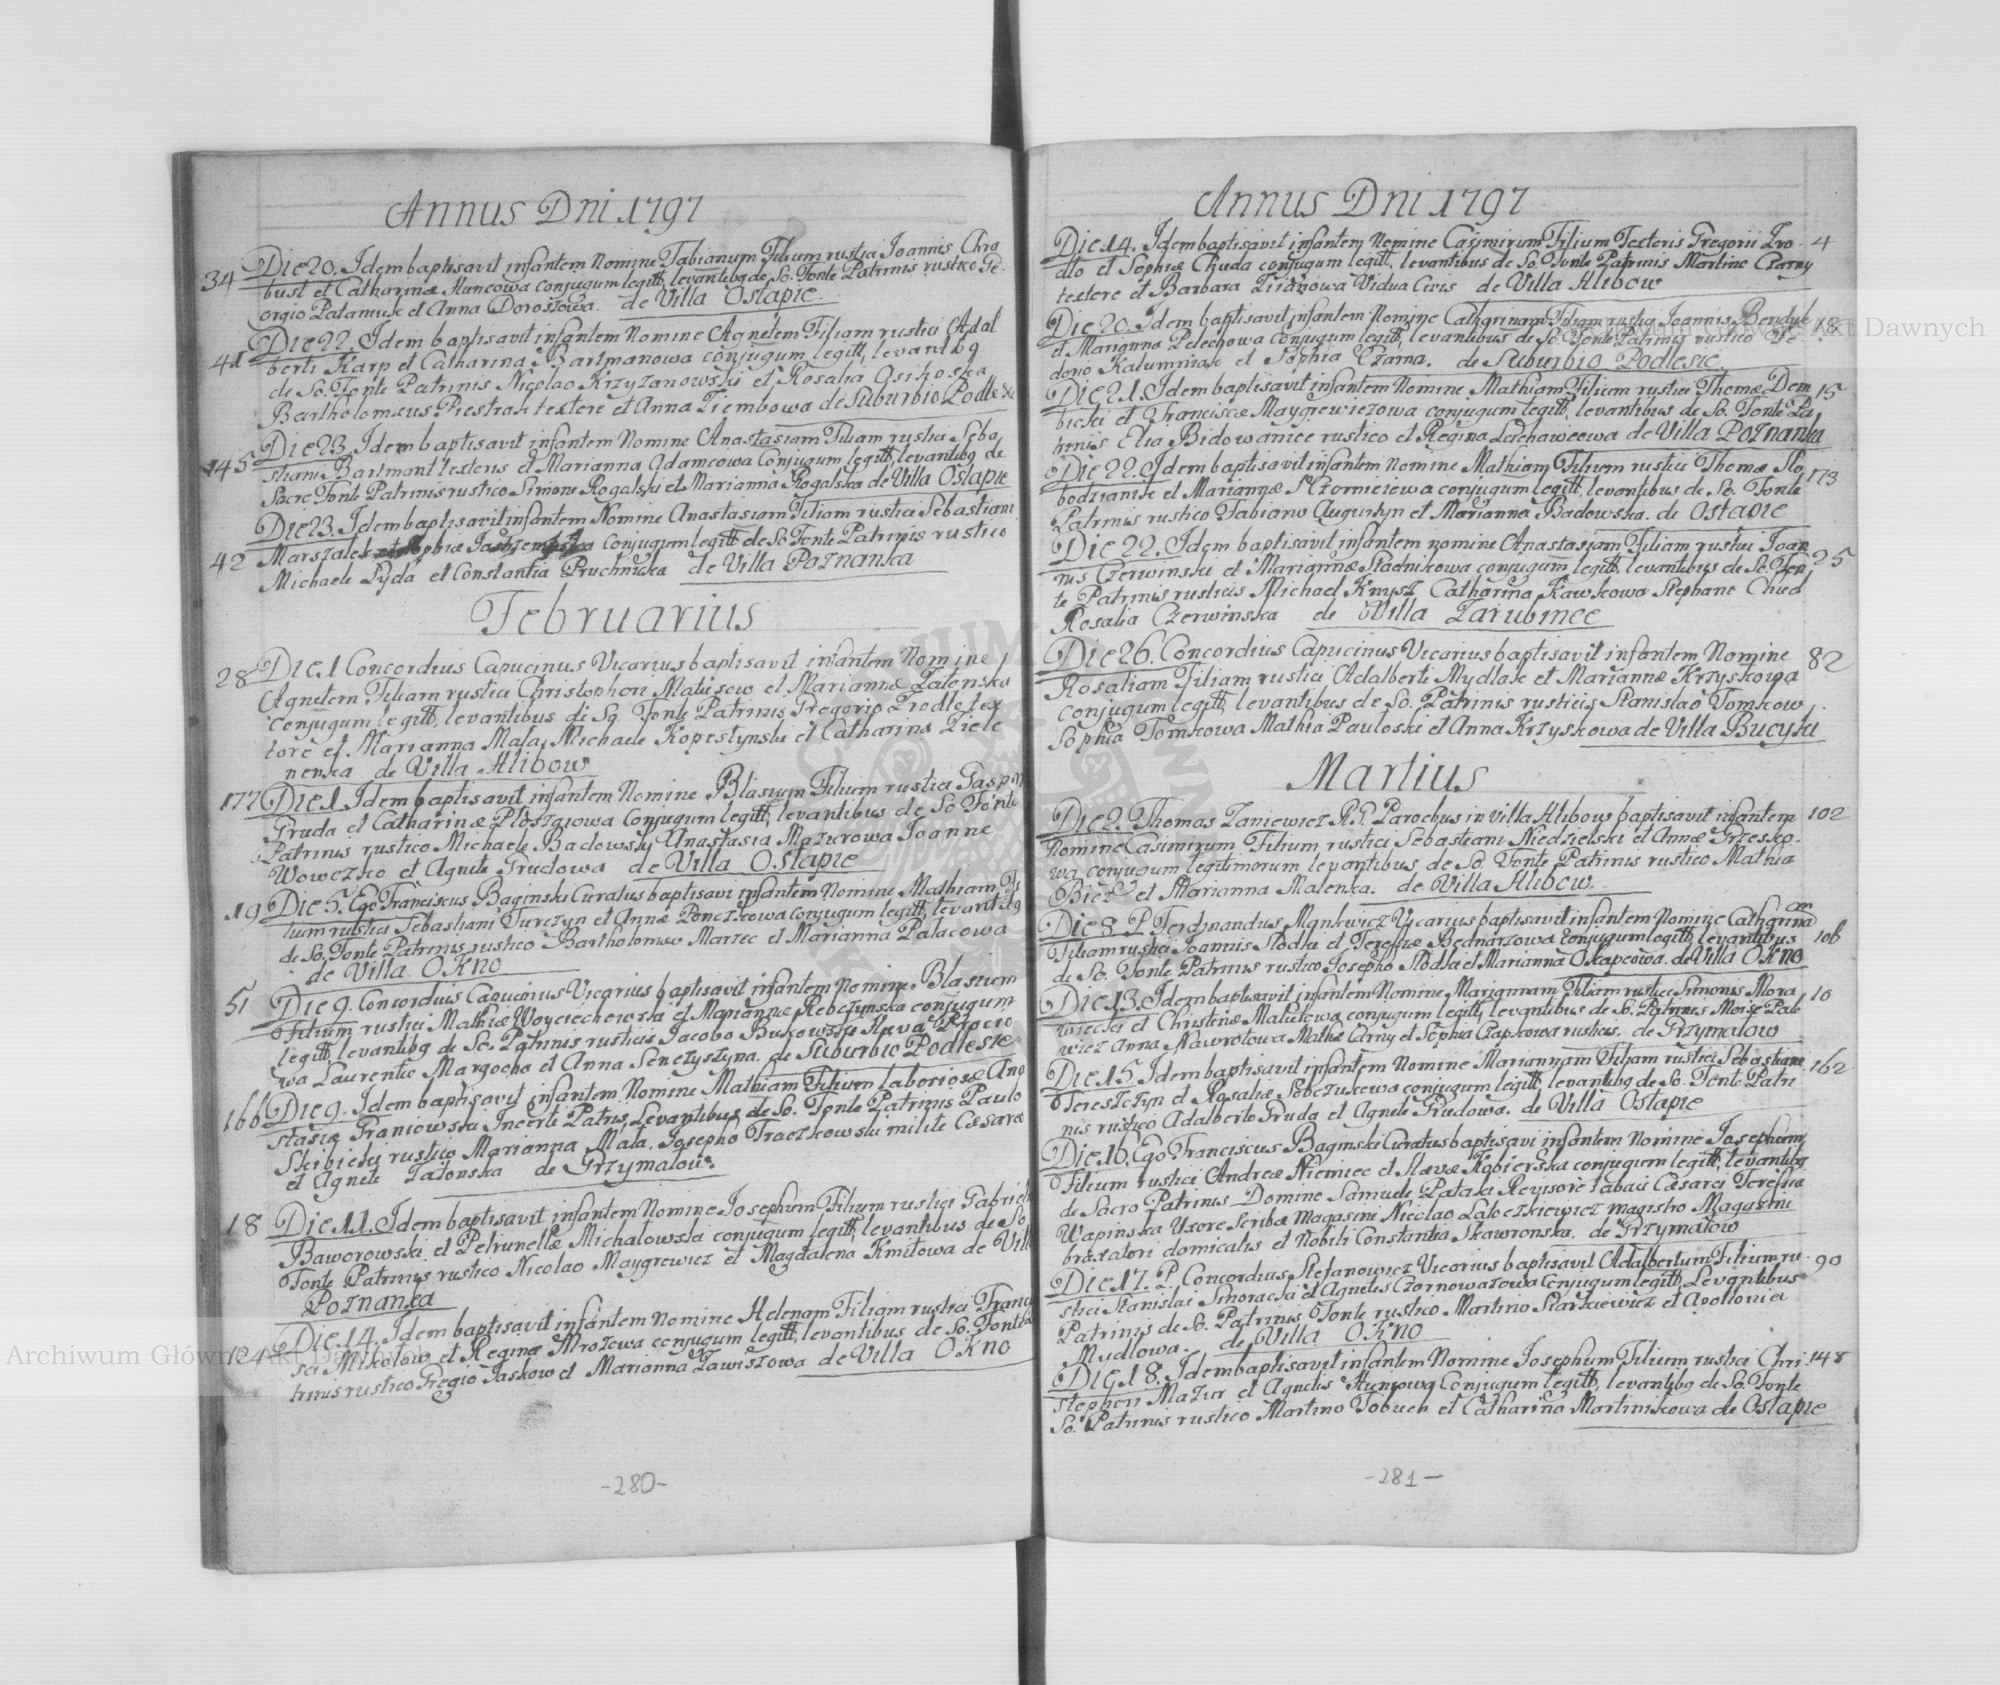 Annus Dni 1797
34 Die 20. Idem baptisavit infantem Nomine Fabianum Filium rustici Joannis Chro
bust et Catharinæ Huncowa conjugum legitt, levantibq de So. Fonte Patrinis rustico Ge-
orgio Palamuk et Anna Doroszowa. de Villa Ostapie.
41 Die 22. Idem baptisavit infantem Nomine Agnetem Filiam rustici Adal
berti Karp et Catharina Bartmanowa conjugum legitt, levantibq
de So. Fonte Patrinis Nicolao Krzyzanowski et Rosalia Osikoska
Bartholomeus Piestrak textere et Anna Ziembowa de Suburbio Podlesie
145 Die 23. Idem baptisavit infantem Nomine Anastasiam Filiam rustici Seba
stiani Bartmant textoris et Marianna Adamcowa conjugum legitt, levantibq de
Sacro Fonte Patrinis rustico Simone Rogalski et Marianna Rogalska de Villa Ostapie
Die 23. Idem baptisavit infantem Nomine Anastasiam Filiam rustici Sebastiani
42 Marszalek et Sophiæ conjugum legitt de So. Fonte Patrinis rustico
Michaele Pyda et Constantia Pruchnicka de Villa Poznanka
Februarius
28 Die 1 Concordius Capucinus Vicarius baptisavit infantem Nomine
Agnetem Filiam rustici Christophori Matusow et Mariannæ Zalonska
conjugum legitt, levantibus de So. Fonte Patrinis Gregorio Prodlo tex
tore et Marianna Mala, Michaele Kopestynski et Catharina Ziele
nenka de Villa Hlibow
177 Die 1 Idem baptisavit infantem Nomine Blasium Filium rustici Gaspari
Gruda et Catharinæ Ploszajowa conjugum legitt, levantibus de So. Fonte
Patrinis rustico Michaele Badowsky Anastasia Mazurowa Joanne
Wowczko et Agnete Grudowa de Villa Ostapie
19 Die 5. Ego Franciscus Baginski Curatus baptisavi infantem Nomine Mathiam Fi
lium rustici Sebastiani Turczyn et Annæ Ponczkowa conjugum legitt, levantibq
de So. Fonte Patrinis rustico Bartholomeo Marzec et Marianna Palacowa
de Villa Okno
51 Die 9. Concordius Capucinus Vicarius baptisavit infantem Nomine Blasium
Filium rustici Mathiæ Woyciechowska et Mariannæ Rebczynska conjugum
legitt, levantibq de So. Patrinis rusticis Jacobo Bukowski Slava
wa Laurentio Margocha et Anna Senczyszyna. de Suburbio Podlesie
166 Die 9. Idem baptisavit infantem Nomine Mathiam Filium laboriosæ Ana
stasiæ Graniowska Incerti Patris, Levantibus de So. Fonte Patrinis Paulo
Skibicki rustico Marianna Mala. Josepho Traczkowski milite Cæsareo
et Agnete Zalonska de Grzymalow.
18 Die 11. Idem baptisavit infantem Nomine Josephum Filium rustici Gabrieli
Baworowski et Petrunellæ Michalowska conjugum legitt, levantibus de So.
Fonte Patrinis rustico Nicolao Maygrewicz et Magdalena Kmitowa de Villa
Poznanka
124 Die 14. Idem baptisavit infantem Nomine Helenam Filiam rustici Franci
sci Mikolow et Reginæ Mrozewa conjugum legitt, levantibus de So. Fonte Pa
trinis rustico Gregio Jaskow et Marianna Zawiszowa de Villa Okno
-280-
Annus Dni 1797
Die 14. Idem baptisavit infantem Nomine Casimirum Filium Texteris Gregorii Pro- 4
dlo et Sophiæ Chuda conjugum legitt, levantibus de So. Fonte Patrinis Martino Czarny
textere et Barbara Vidua Civis de Villa Hlibow
Die 20. Idem baptisavit infantem Nomine Catharinam Filiam rustici Joannis Benduk 18
et Marianna Pelechowa conjugum legitt, levantibus de So. Fonte Patrinis rustico Fe-
dorio Kalumniak et Sophia Czarna. de Suburbio Podlesie
Die 21. Idem baptisavit infantem Nomine Mathiam Filium rustici Thomæ Dem 15
bicki et Franciscæ Maygrewiczowa conjugum legitt, levantibus de So. Fonte Pa
trinis Elia Bidowaniec rustico et Regina Lachawcowa de Villa Poznanka
Die 22. Idem baptisavit infantem Nomine Mathiam Filium rustici Thomæ Slo 173
bodzianik et Mariannæ Czornieiewa conjugum legitt, levantibus de So. Fonte
Patrinis rustico Fabiano Augustyn et Marianna Badowska. de Ostapie
Die 22. Idem baptisavit infantem nomine Anastasiam Filiam rustici Joan
nis Czerwinski et Mariannæ Stadnikowa conjugum legitt, levantibus de So. Fon 25
te Patrinis rusticis Michael Kmysz Catharina Kawkowa Stephano Chud
Rosalia Czerwinska de Villa Zarubince
Die 26. Concordius Capucinus Vicarius baptisavit infantem Nomine 82
Rosaliam Filiam rustici Adalberti Mydlak et Mariannæ Krzyskowa
conjugum legitt, levantibus de So. Patrinis rusticis Stanislao Tomkow
Sophia Tomkowa Mathia Pauloski et Anna Krzyskowa de Villa Bucyki
Martius
Die 2. Thomas Zaniewicz R.R. Parochus in villa Hlibow baptisavit infantem 102
Nomine Casimirum Filium, rustici Sebastiani Niedzielski et Annæ Grzesko-
wa conjugum legitimorum levantibus de So. Fonte Patrinis rustico Mathia
Biez et Marianna Malenka. de Villa Hlibow.
Die 8 P. Ferdynandus Mynkwicz Vicarius baptisavit infantem Nomine Catharinam
Filiam rustici Joannis Slodki et Teressæ Bednarzowa conjugum legitt, levantibus 106
de So. Fonte Patrinis rustico Josepho Slodka et Marianna Okapcowa. de Villa Okno
Die 13. Idem baptisavit infantem Nomine Mariannam Filiam rustici Simonis Mora 10
wiecki et Christinæ Malutowa conjugum legitt, levantibus de So. Patrinis Moise Pale
wicz Anna Nawrotowa Mathia Carny et Sophia Czapkowa rusticis. de Grzymalow
Die 15. Idem baptisavit infantem Nomine Mariannam Filiam rustici Sebastiani 162
Tereszczyn et Rosaliæ Sobczukowa conjugum legitt, levantibq de So. Fonte Patri
nis rustico Adalberto Gruda et Agnete Grudowa. de Villa Ostapie
Die 16. Ego Franciscus Baginski Curatus baptisavi infantem Nomine Josephum
Filium rustici Andreæ Niemiec et Slavæ Kobierska conjugum legitt, levantibq
de Sacro Patrinis Domino Samuele Pataki Revisore tabaci Cæsarei Teresia
Wapinska Uxore Scribæ Magasini Nicolao Latoczkiewicz magistro Magazini
braxatori domicalis et Nobili Constantia Skawronska. de Grzymalow
Die 17. P. Concordius Stefanowicz Vicarius baptisavit Adalbertum Filium ru- 90
stici Stanislai Smoracki et Agnetis Czornowazowa conjugum legitt, Levantibus
Patrinis de So. Patrinis Fonte rustico Martino Starkiewicz et Apollonia
Mydlowa. de Villa Okno
Die 18. Idem baptisavit infantem Nomine Josephum Filium rustici Chri 148
stophori Mazur et Agnetis Huniowa Conjugum legitt, levantibq de So. Fonte
So. Patrinis rustico Martino Tobuch et Catharina Martinikowa de Ostapie
-281-
Archiwum Główne Akt Dawnych
Archiwum Główne Akt Dawnych